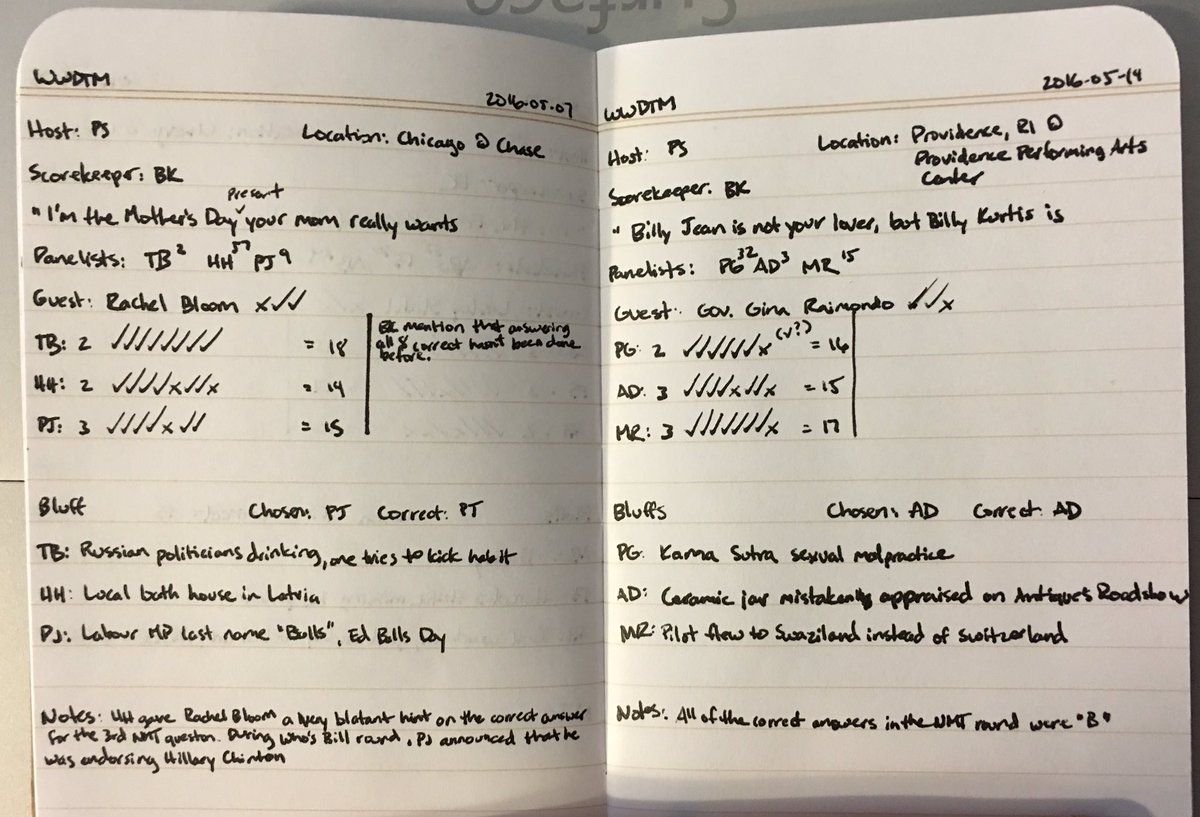 WWDTM
2016-05-07
Host: PS Location: Chicago @ Chase
Scorekeeper: BK
"I'm the Mother's Day present your mom really wants
Panelists: TB² HH⁵⁷ PJ⁹
Guest: Rachel Bloom x✓✓
TB: 2 ✓✓✓✓✓✓✓✓ = 18
HH: 2 ✓✓✓✓x✓✓x = 14
PJ: 3 ✓✓✓✓x✓✓ = 15
BK mention that answering
all 8 correct hasn't been done
before.
Bluff Chosen: PJ Correct: PJ
TB: Russian politicians drinking, one tries to kick habit
HH: Local bath house in Latvia
PJ: Labour MP last name "Balls", Ed Balls Day
Notes: HH gave Rachel Bloom a very blatant hint on the correct answer
for the 3rd NMJ question. During Who's Bill round, PJ announced that he
was endorsing Hillary Clinton
2016-05-14
WWDTM
Host: PS Location: Providence, RI @
Providence Performing Arts
Center
Scorekeeper: BK
"Billy Jean is not your lover, but Billy Kurtis is
Panelists: PG³² AD³ MR¹⁵
Guest: Gov. Gina Raimondo ✓✓x
PG: 2 ✓✓✓✓✓✓x (✓?) = 16
AD: 3 ✓✓✓✓x✓✓x = 15
MR: 3 ✓✓✓✓✓✓✓x = 17
Bluffs Chosen: AD Correct: AD
PG: Kama Sutra sexual malpractice
AD: Ceramic jar mistakenly appraised on Antiques Roadshow
MR: Pilot flew to Swaziland instead of Switzerland
Notes: All of the correct answers in the NMJ round were "B"